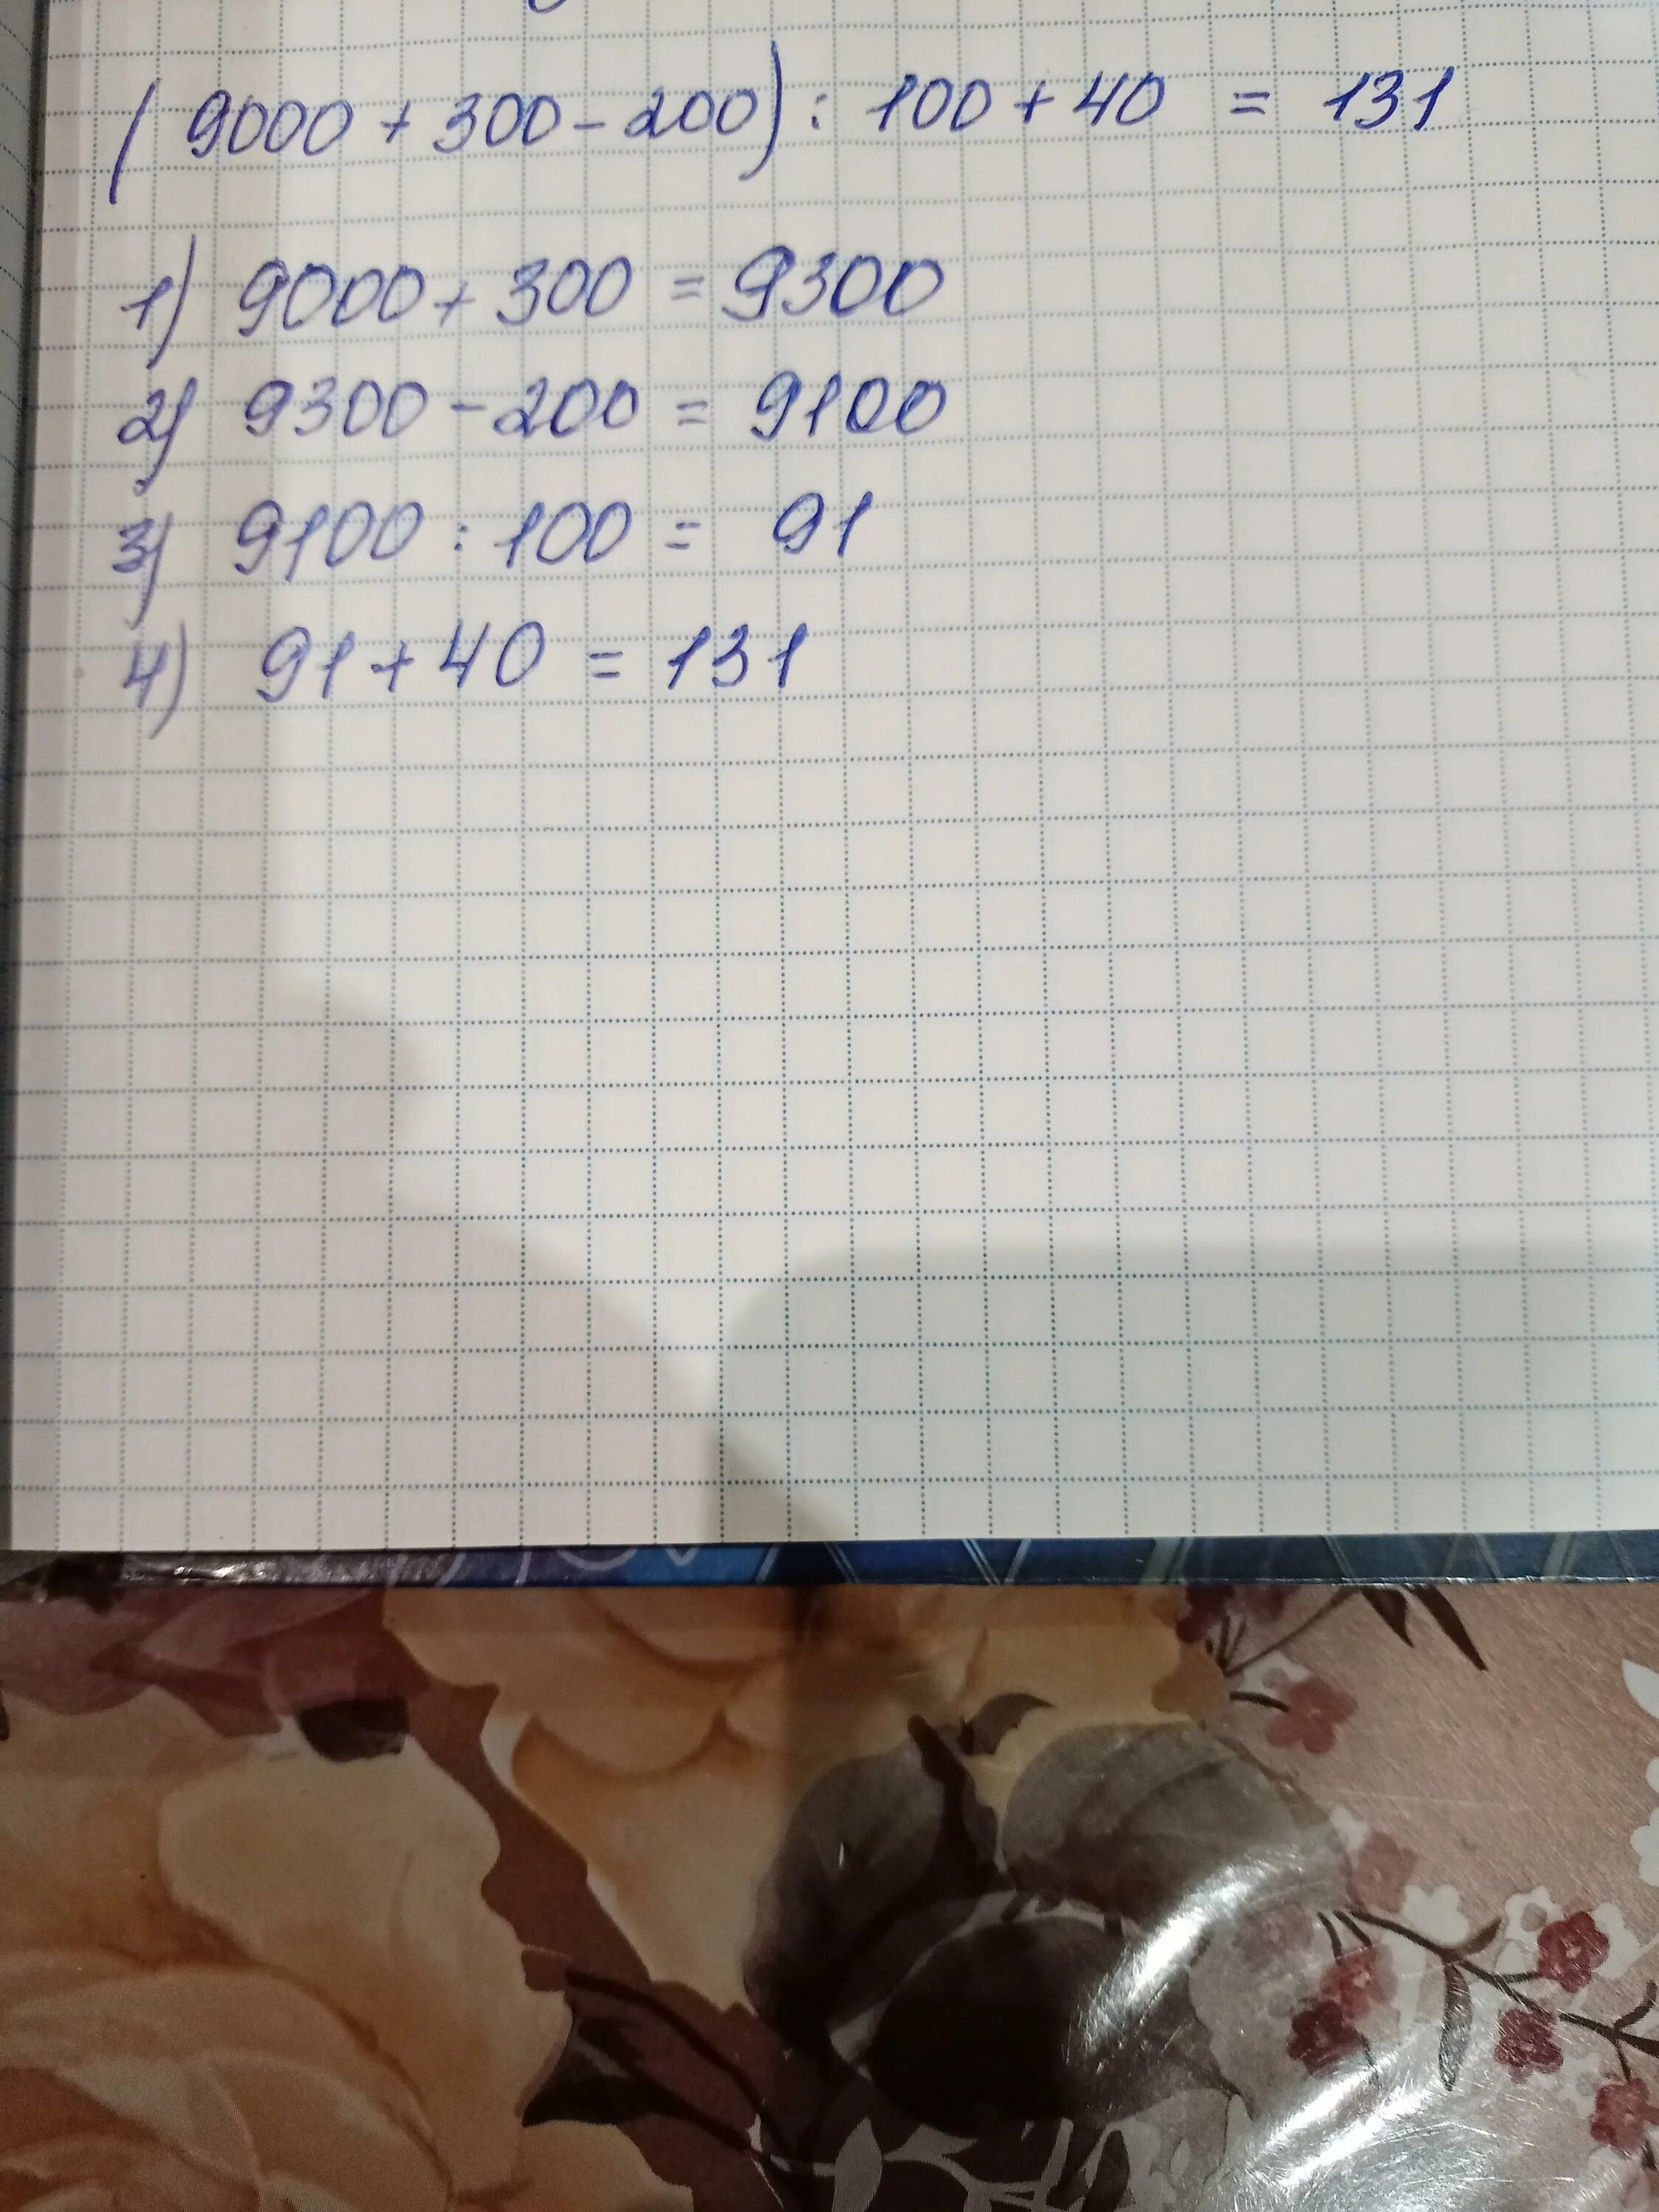 (9000 + 300 - 200) : 100 + 40 = 131
1) 9000 + 300 = 9300
2) 9300 - 200 = 9100
3) 9100 : 100 = 91
4) 91 + 40 = 131